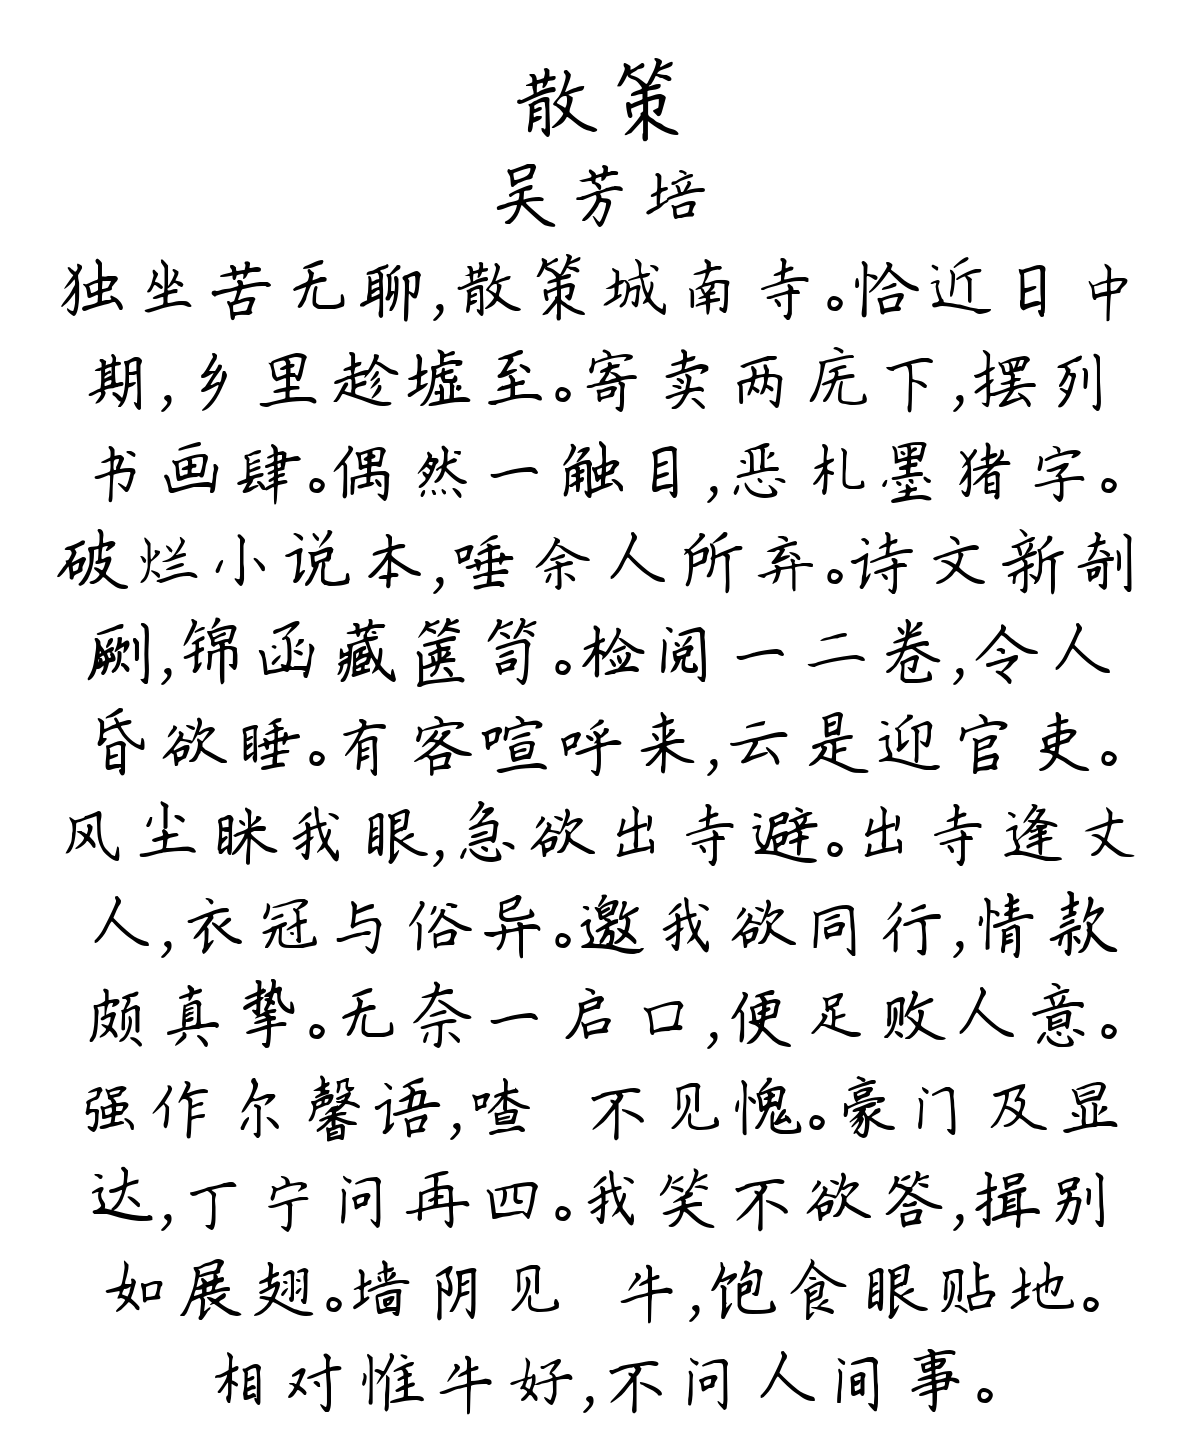 散策
吴芳培
独坐苦无聊,散策城南寺。恰近日中
期,乡里趁墟至。寄卖两庑下,摆列
书画肆。偶然一触目,恶札墨猪字。
破烂小说本,唾余人所弃。诗文新剞
劂,锦函藏箧笥。检阅一二卷,令人
昏欲睡。有客喧呼来,云是迎官吏。
风尘眯我眼,急欲出寺避。出寺逢丈
人,衣冠与俗异。邀我欲同行,情款
颇真挚。无奈一启口,便足败人意。
强作尔馨语,喳 不见愧。豪门及显
达,丁宁问再四。我笑不欲答,揖别
如展翅。墙阴见 牛,饱食眼贴地。
相对惟牛好,不问人间事。